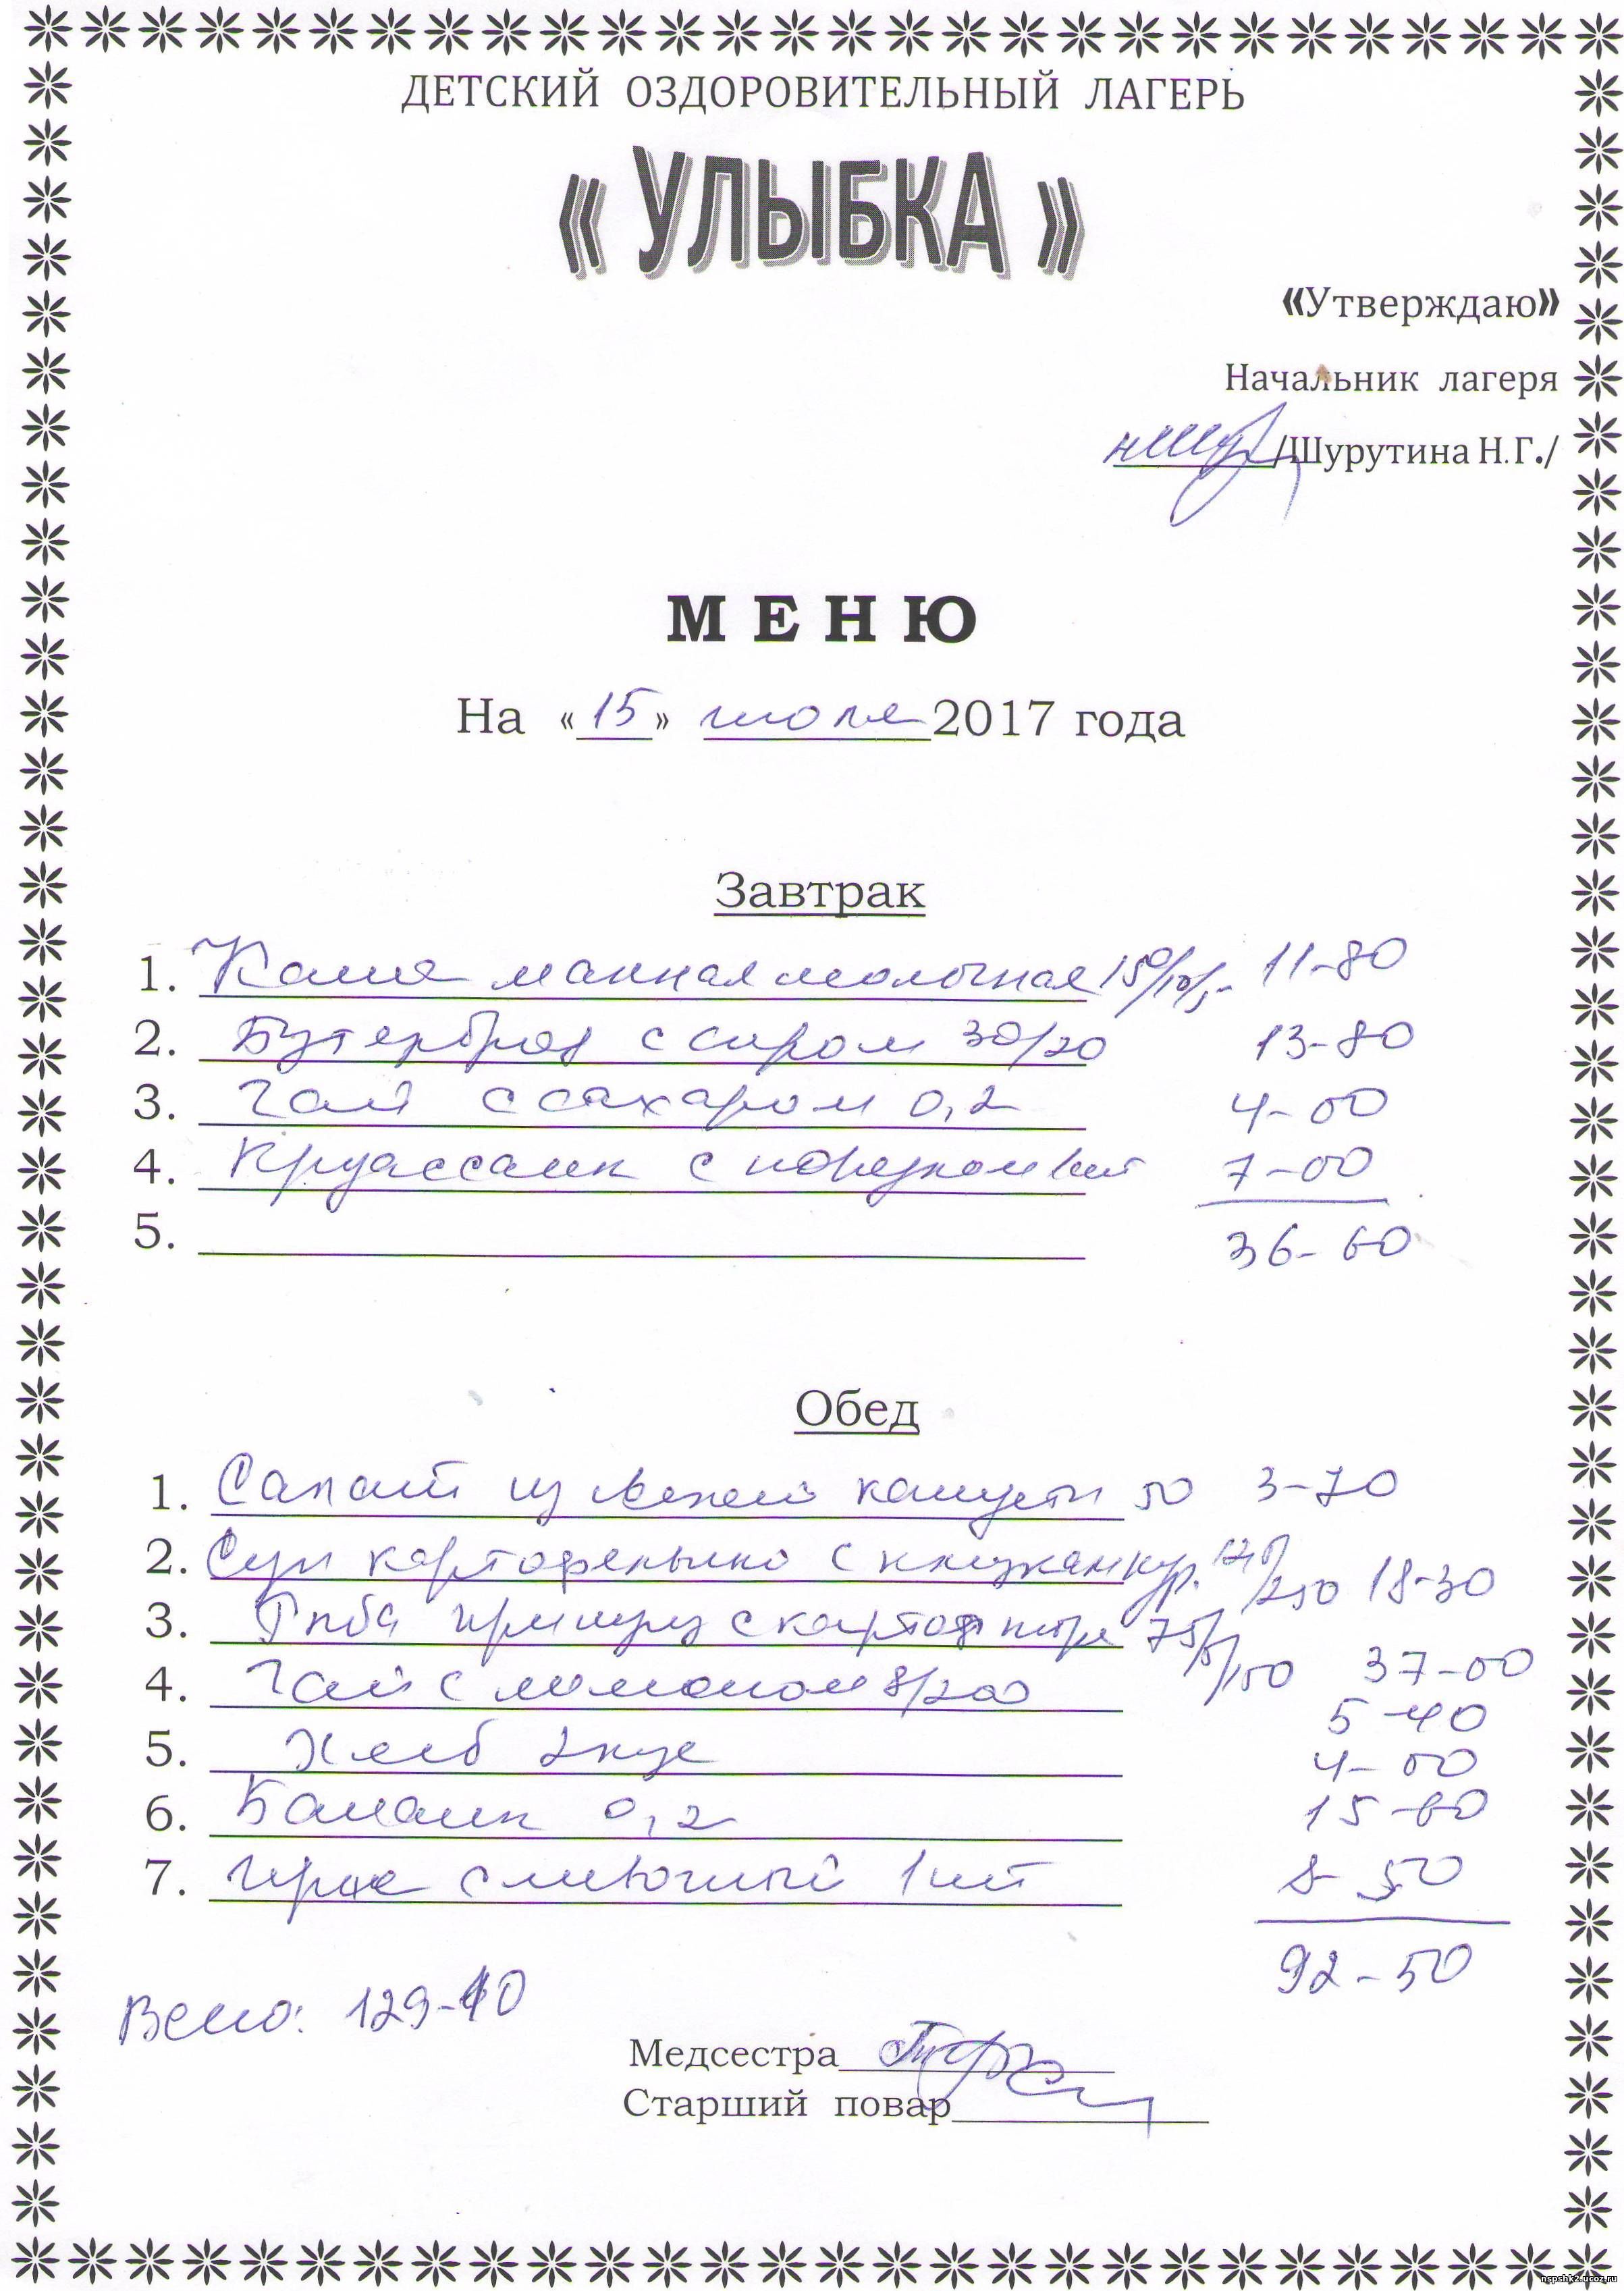 ДЕТСКИЙ ОЗДОРОВИТЕЛЬНЫЙ ЛАГЕРЬ
« УЛЫБКА »
«Утверждаю»
Начальник лагеря
/Шурутина Н.Г./
МЕНЮ
На «15» июля 2017 года
Завтрак
1. Каша манная молочная 150/10/5 - 11-80
2. Бутерброд с сыром 30/20 13-80
3. Чай с сахаром 0,2 4-00
4. Круассаны с 1шт 7-00
5. 36-60
Обед
1. Салат из свежей капусты 50 3-70
2. Суп картофельный с кур. /250 18-30
3. Рыба припущ с картоф пюре 75/5/150 37-00
4. Чай с лимоном 8/200 5-40
5. Хлеб 2 кус 4-00
6. Бананы 0,2 15-60
7. Ирис сливочный 1шт 8-50
92-50
Всего: 129-10
Медсестра
Старший повар
nspshk2.ucoz.ru